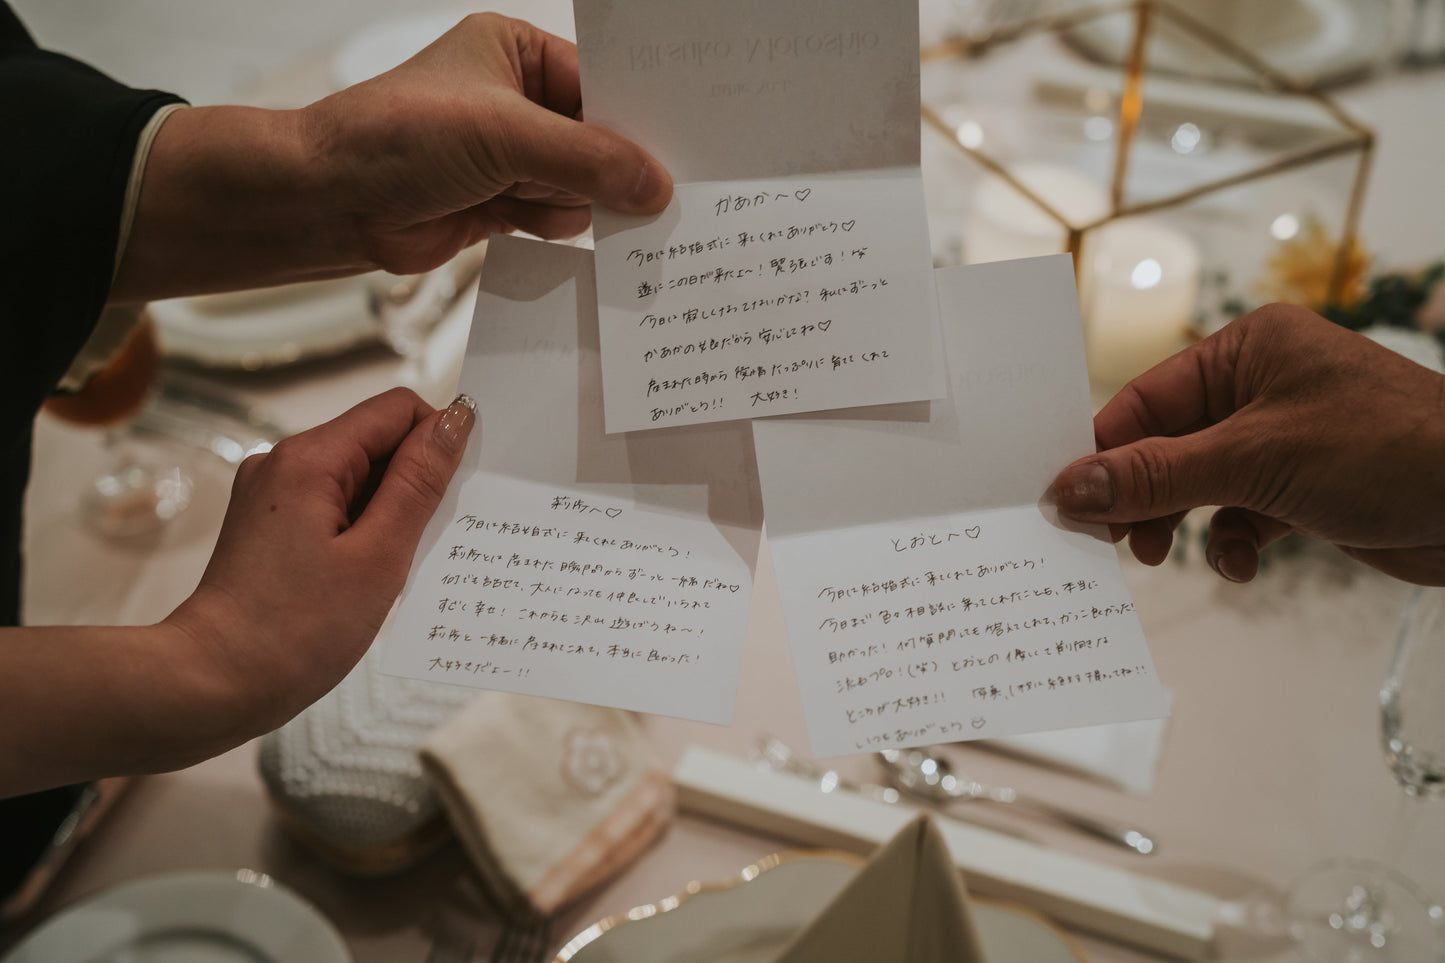 Ritsuko Motoshio
Table No.1
かあかへ♡
今日は結婚式に来てくれてありがとう♡
遂にこの日が来たよ〜！緊張です！笑
今日は寂しくなってないかな？私はずーっと
かあかの娘だから安心してね♡
産まれた時から愛情たっぷりに育ててくれて
ありがとう!! 大好き！
莉所へ♡
今日は結婚式に来てくれてありがとう！
莉所とは産まれた瞬間からずーっと一緒だね♡
何でも話せて、大人になっても仲良しでいられて
すごく幸せ！これからも沢山遊ぼうね〜！
莉所と一緒に産まれてこれて、本当に良かった！
大好きだよー!!
とおとへ♡
今日は結婚式に来てくれてありがとう！
今日まで色々相談に乗ってくれたことも、本当に
助かった！何質問しても答えてくれて、かっこ良かった！
さすがプロ！(笑) とおとの優しくて前向きな
ところが大好き!! 写真、
いつもありがとう